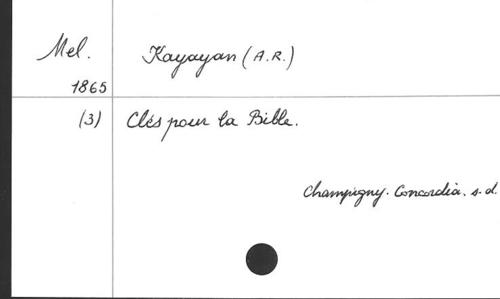 Mel. Kayayan (A.R.)
1865
(3) Clés pour la Bible.
Champigny. Concordia. s.d.